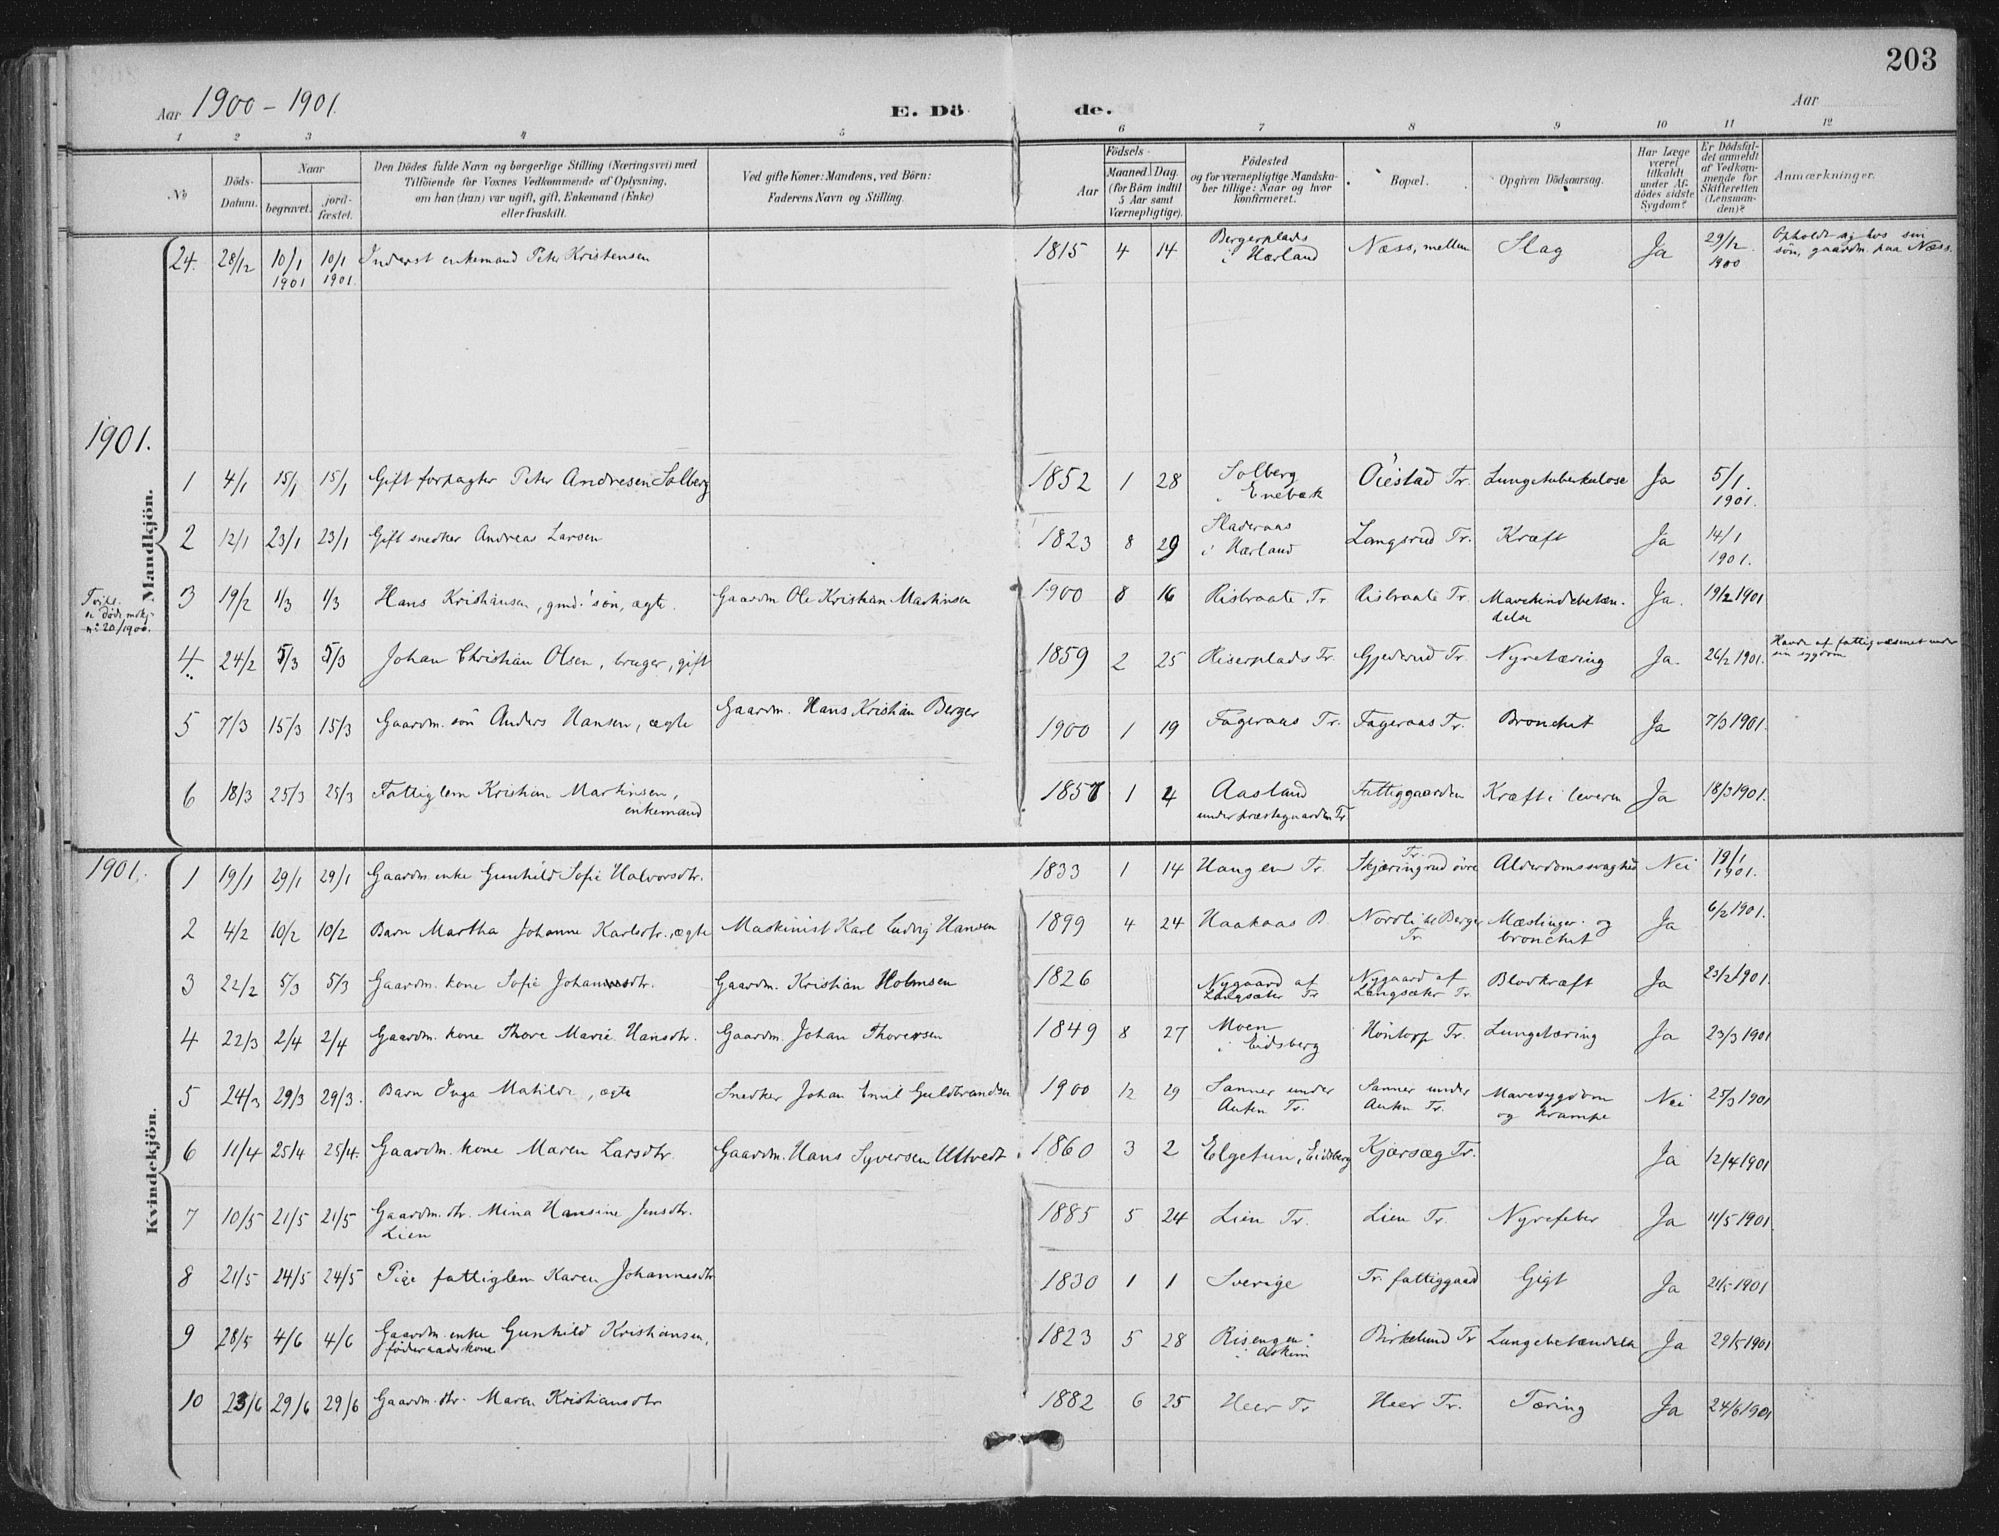 203
Aar 1900 - 1901. E. Dö de. Aar
1 2 3 4 5 6 7 8 9 10 11 12
No
Döds-
Datum.
Naar
begravet.
jord-
fæstet.
Den Dödes fulde Navn og borgerlige Stilling (Næringsvei) med
Tilföiende for Voxnes Vedkommende af Oplysning,
om han (hun) var ugift, gift, Enkemand (Enke)
eller fraskilt.
Ved gifte Koner: Mandens, ved Börn:
Faderens Navn og Stilling.
Födsels-
Aar
Maaned. Dag.
(for Börn indtil
5 Aar samt
Værnepligtige).
Födested
og for værnepligtige Mandska-
ber tillige: Naar og hvor
konfirmeret.
Bopæl.
Opgiven Dödsaarsag.
Har Læge
været
tilkaldt
under Af-
dödes sidste
Sygdom?
Er Dödsfal-
det anmeldt
af Vedkom-
mende for
Skifteretten
(Lensman-
den)?
Anmærkninger.
Mandkjön.
24. 28/12 10/1 1901 10/1 1901. Inderst enkemand Peter Kristensen 1815 4 14 Bergerplads i Hærland Næss, mellem Slag Ja 29/12 1900 Opholdt sig hos sin
søn, gaardm. paa Næss.
1901.
1 4/1 15/1 15/1 Gift forpagter Peter Andresen Solberg 1852 1 28 Solberg i Enebak Öiestad Tr. Lungetuberkulose Ja 5/1. 1901.
2 12/1 23/1 23/1 Gift snedker Andreas Larsen 1823 8 29 Sladeraas i Hærland Langsrud Tr. Kræft Ja 14/1 1901.
3 19/2 1/3 1/3 Hans Kristiansen, gmd. søn, ægte. Gaardm Ole Kristian Martinsen 1900 8 16 Risbraate Tr Risbraate Tr. Mavehindebetæn-
delse Ja. 19/2 1901
4 24/2 5/3 5/3 Johan Christian Olsen, bruger, gift 1859 2 25 Riserplads Tr. Gjederud Tr. Nyretæring Ja. 26/2 1901. Havde af fattigvæsenet under
sin sygdom
5 7/3 15/3 15/3 Gaardm. søn Anders Hansen, ægte Gaardm. Hans Kristian Berger 1900 1 19 Fageraas Tr. Fageraas Tr. Bronchet Ja 7/3 1901.
6 18/3 25/3 25/3 Fattiglem Kristian Martinsen,
enkemand 1857 1 4 Aasland
under præstegaarden Tr Fattiggaarden Kræft i leveren Ja 18/3 1901.
Kvindekjön.
1901.
1 19/1 29/1 29/1 Gaardm. enke Gunhild Sofie Halvorsdtr. 1833 1 14 Haugen Tr. Skjæringrud övre Tr. Alderdomssvaghed Nei 19/1 1901.
2 4/2 10/2 10/2 Barn Martha Johanne Karlsdtr. ægte Maskinist Karl Ludvig Hansen 1899 4 24 Haakaas B Nordli til Berger Tr. Mæslinger og
bronchet Ja 6/2 1901.
3 22/2 5/3 5/3 Gaardm. kone Sofie Johannesdtr. Gaardm. Kristian Holmsen 1826 Nygaard af
Langsæter Tr Nygaard af
Langsæter Tr. Blodkræft Ja 23/2 1901.
4 22/3 2/4 2/4 Gaardm. kone Thore Marie Hansdtr. Gaardm. Johan Thoresen 1849 8 27 Moen
i Eidsberg Höntorp Tr. Lungetæring Ja 23/3 1901
5 24/3 29/3 29/3. Barn Inga Matilde, ægte Snedker Johan Emil Guldbrandsen 1900 12 29 Sanner under
Anken Tr. Sanner under
Anken Tr. Mavesygdom
og krampe Nei 25/3 1901
6 11/4 25/4 25/4. Gaardm. kone Maren Larsdtr. Gaardm. Hans Syversen Ultvedt 1860 3 2 Elgetun, Eidsberg Kjærsæg Tr. Ja 12/4 1901
7 10/5 21/5 21/5 Gaardm. dtr. Mina Hansine Jensdtr.
Lien 1885 5 24 Lien Tr. Lien Tr. Nyrefeber Ja 11/5 1901.
8 21/5 24/5 24/5 Pige fattiglem Karen Johannesdtr 1830 1 1 Sverige Tr. fattiggaard Gigt Ja 21/5 1901
9 28/5 4/6 4/6 Gaardm. enke Gunhild Kristiansen,
föderaadskone 1823 5 28 Risengen
i Askim Birkelund Tr Lungebetændelse Ja 29/5 1901
10 23/6 29/6 29/6 Gaardm. dtr. Maren Kristiansdtr 1882 6 25 Heer Tr Heer Tr. Tæring Ja 24/6 1901